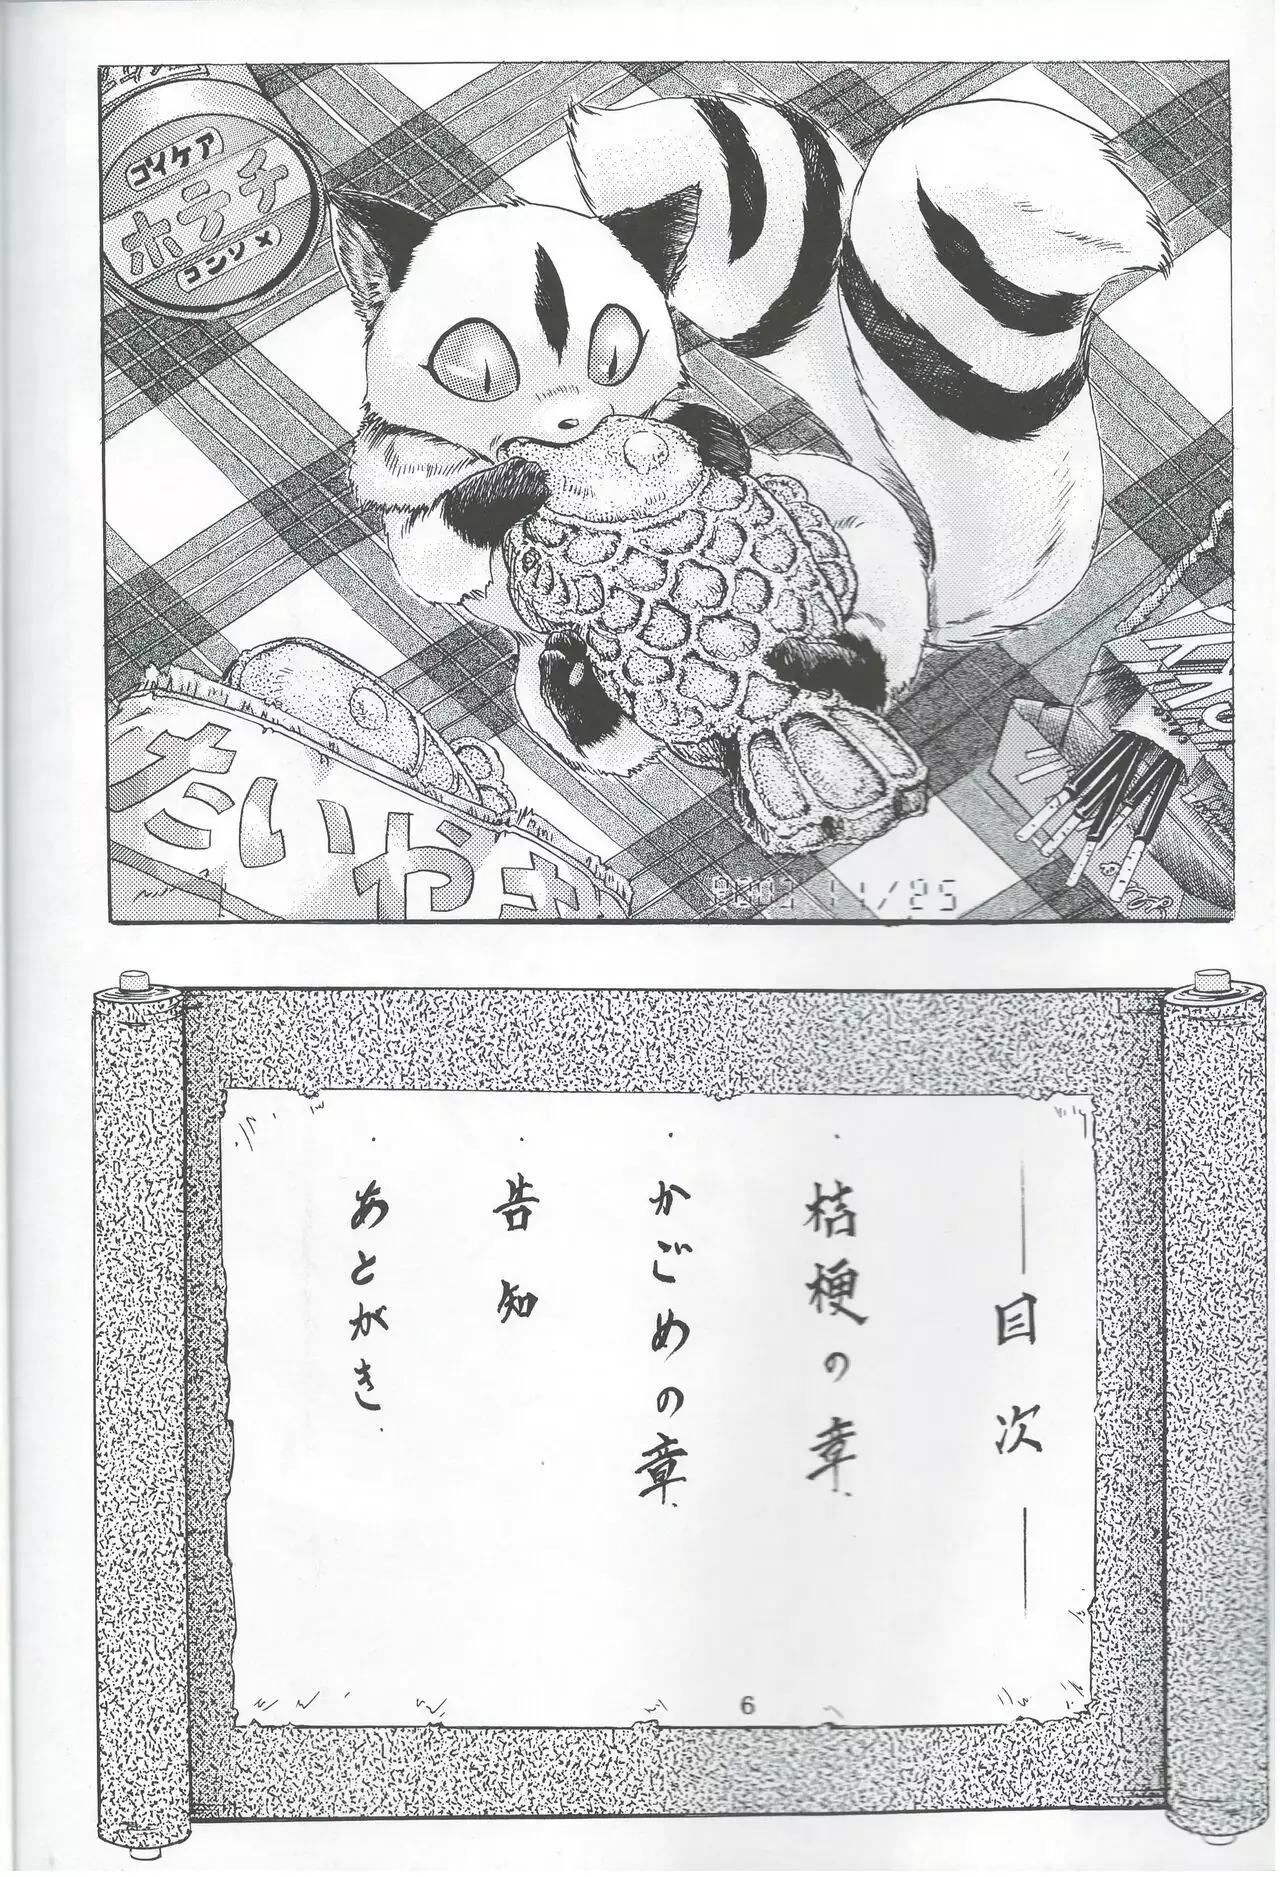 コイケア
ホテチ
コンソメ
たいやき
11/25
目次
・桔梗の章.
・かごめの章.
・告知
・あとがき.
6